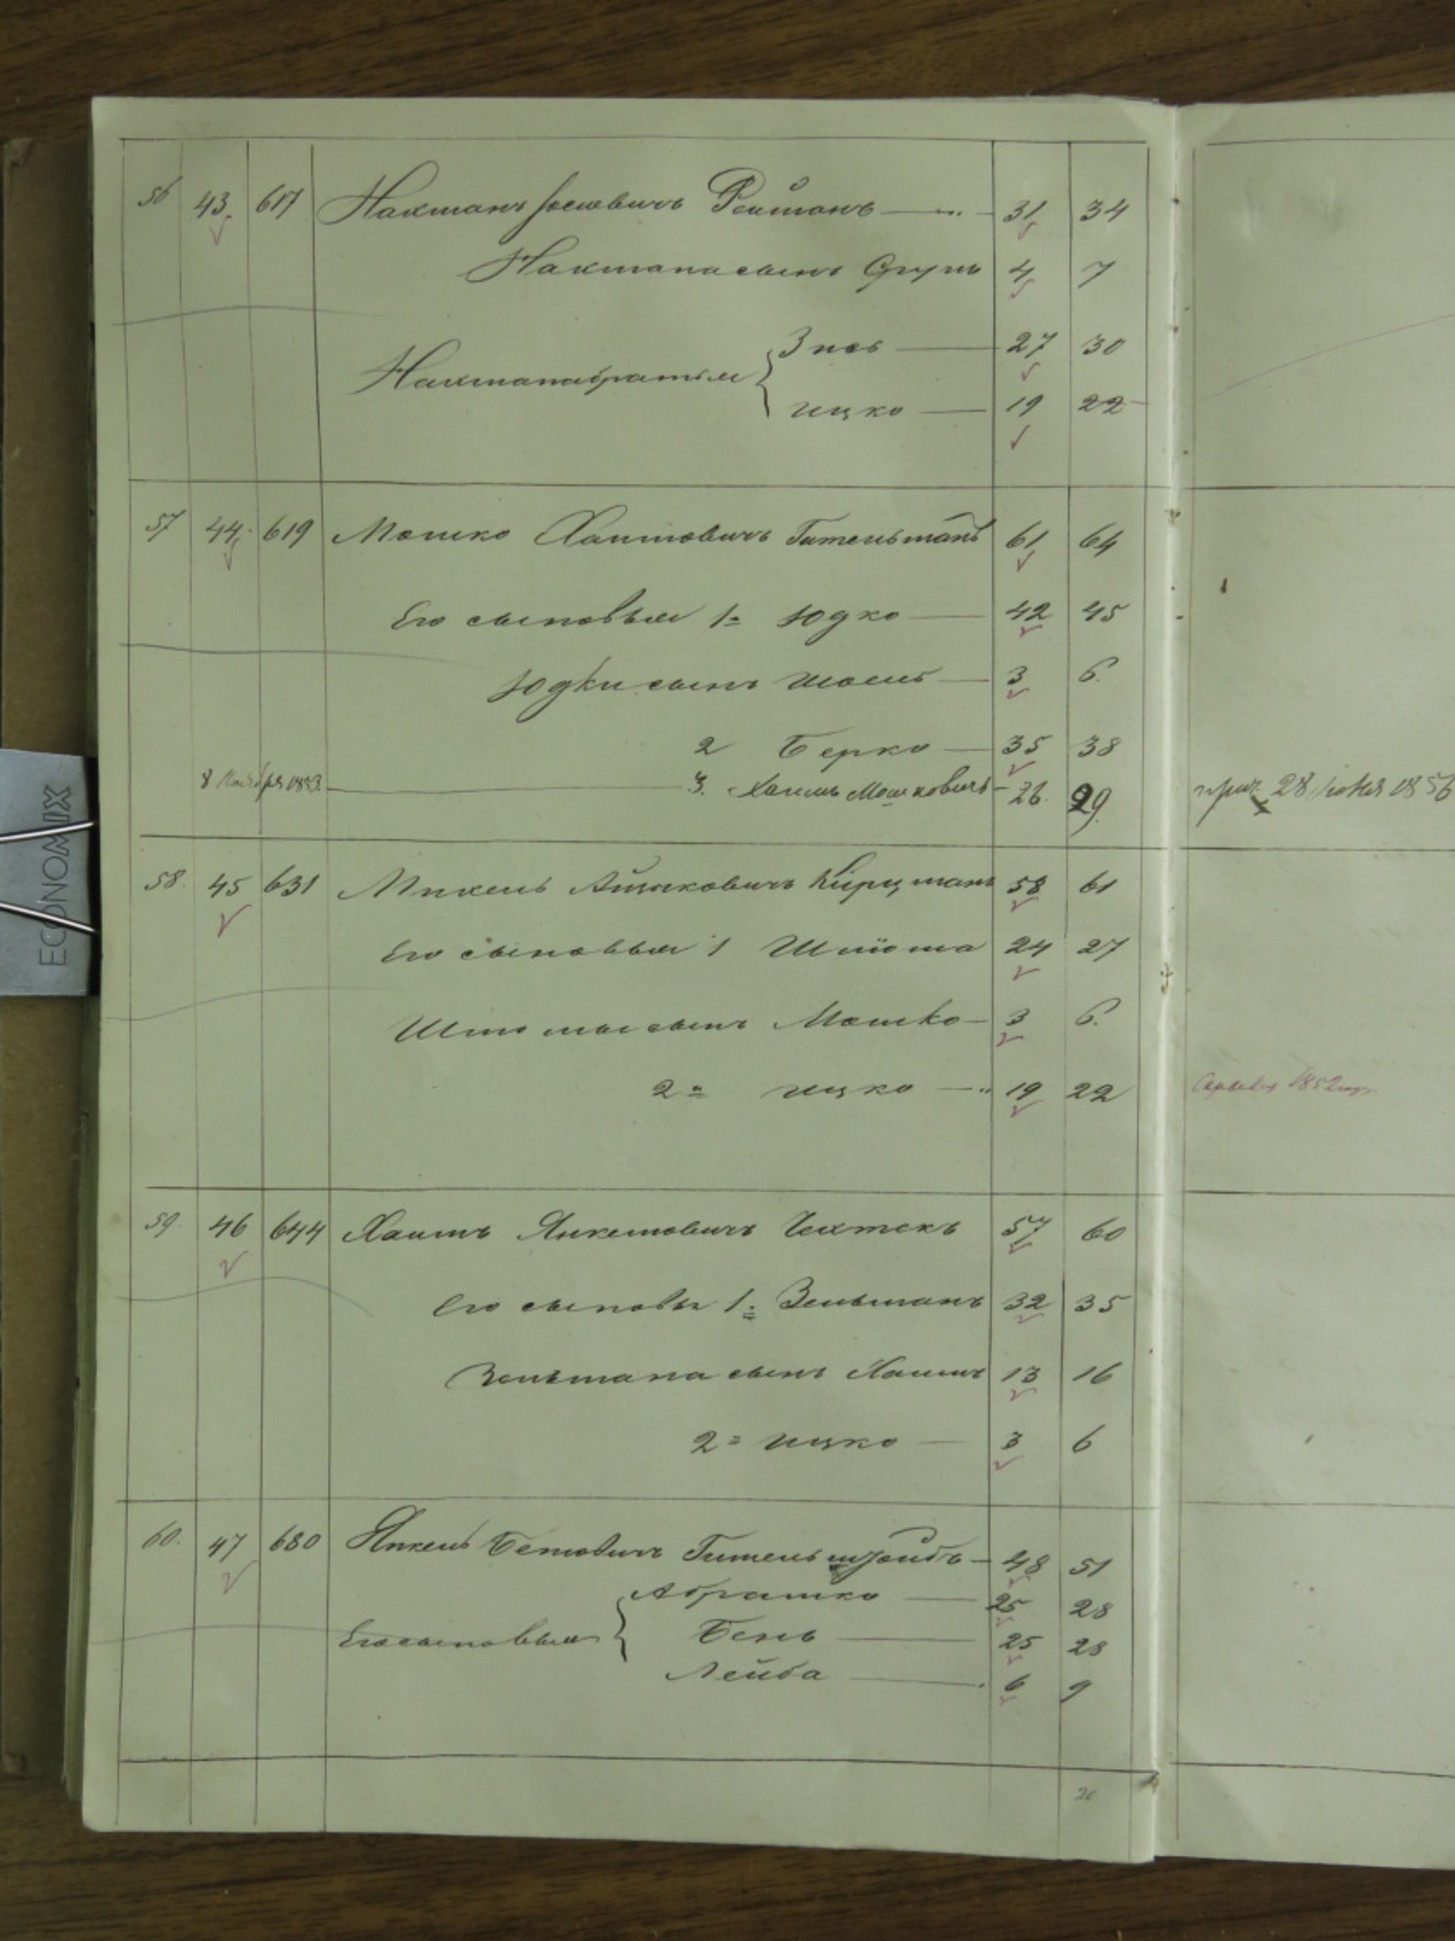 56 43 617 Нахманъ Іосіовичъ Рейманъ 31 34
Нахмана сынъ Сруль 4 7
Зись 27 30
Нахмана братья
Ицко 19 22
57 44 619 Мошко Хаимовичъ Гительманъ 61 64
Его сыновья 1й Юдко 42 45
Юдки сынъ Шоель 3 6
2 Берко 35 38
8 Ноября 1853 3. Хаимъ Мошковичъ 26 29 28 1856
58 45 631 Михель Айзиковичъ Кирцманъ 58 61
Его сыновья 1 Шліома 24 27
Шліомы сынъ Мошко 3 6
2й Ицко 19 22 1852
59 46 644 Хаимъ Янкелевичъ 57 60
Его сыновья 1й Зельманъ 32 35
Зельмана сынъ Хаимъ 13 16
2й Ицко 3 6
60 47 680 Янкель Гительшрайбъ 48 51
Абрамко 25 28
Его сыновья Бень 25 28
Лейба 6 9
20
ECONOMIX